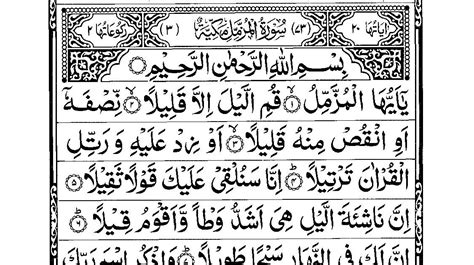 اٰيَاتُهَا ٢٠ (٧٣) سُوْرَةُ الْمُزَّمِّلِ مَكِّيَّةٌ (٣) رُكُوْعَاتُهَا ٢
بِسْمِ اللّٰهِ الرَّحْمٰنِ الرَّحِيْمِ
يٰۤاَيُّهَا الْمُزَّمِّلُ ۙ‏﴿۱﴾ قُمِ الَّيْلَ اِلَّا قَلِيْلًا ۙ‏﴿۲﴾ نِّصْفَهٗۤ
اَوِ انْقُصْ مِنْهُ قَلِيْلًا ۙ‏﴿۳﴾ اَوْ زِدْ عَلَيْهِ وَ رَتِّلِ
الْقُرْاٰنَ تَرْتِيْلًا ؕ‏﴿۴﴾ اِنَّا سَنُلْقِىْ عَلَيْكَ قَوْلًا ثَقِيْلًا ‏﴿۵﴾
اِنَّ نَاشِئَةَ الَّيْلِ هِىَ اَشَدُّ وَطْاً وَّاَقْوَمُ قِيْلًا ؕ‏﴿۶﴾
اِنَّ لَكَ فِى النَّهَارِ سَبْحًا طَوِيْلًا ؕ‏﴿۷﴾ وَاذْكُرِ اسْمَ رَبِّكَ